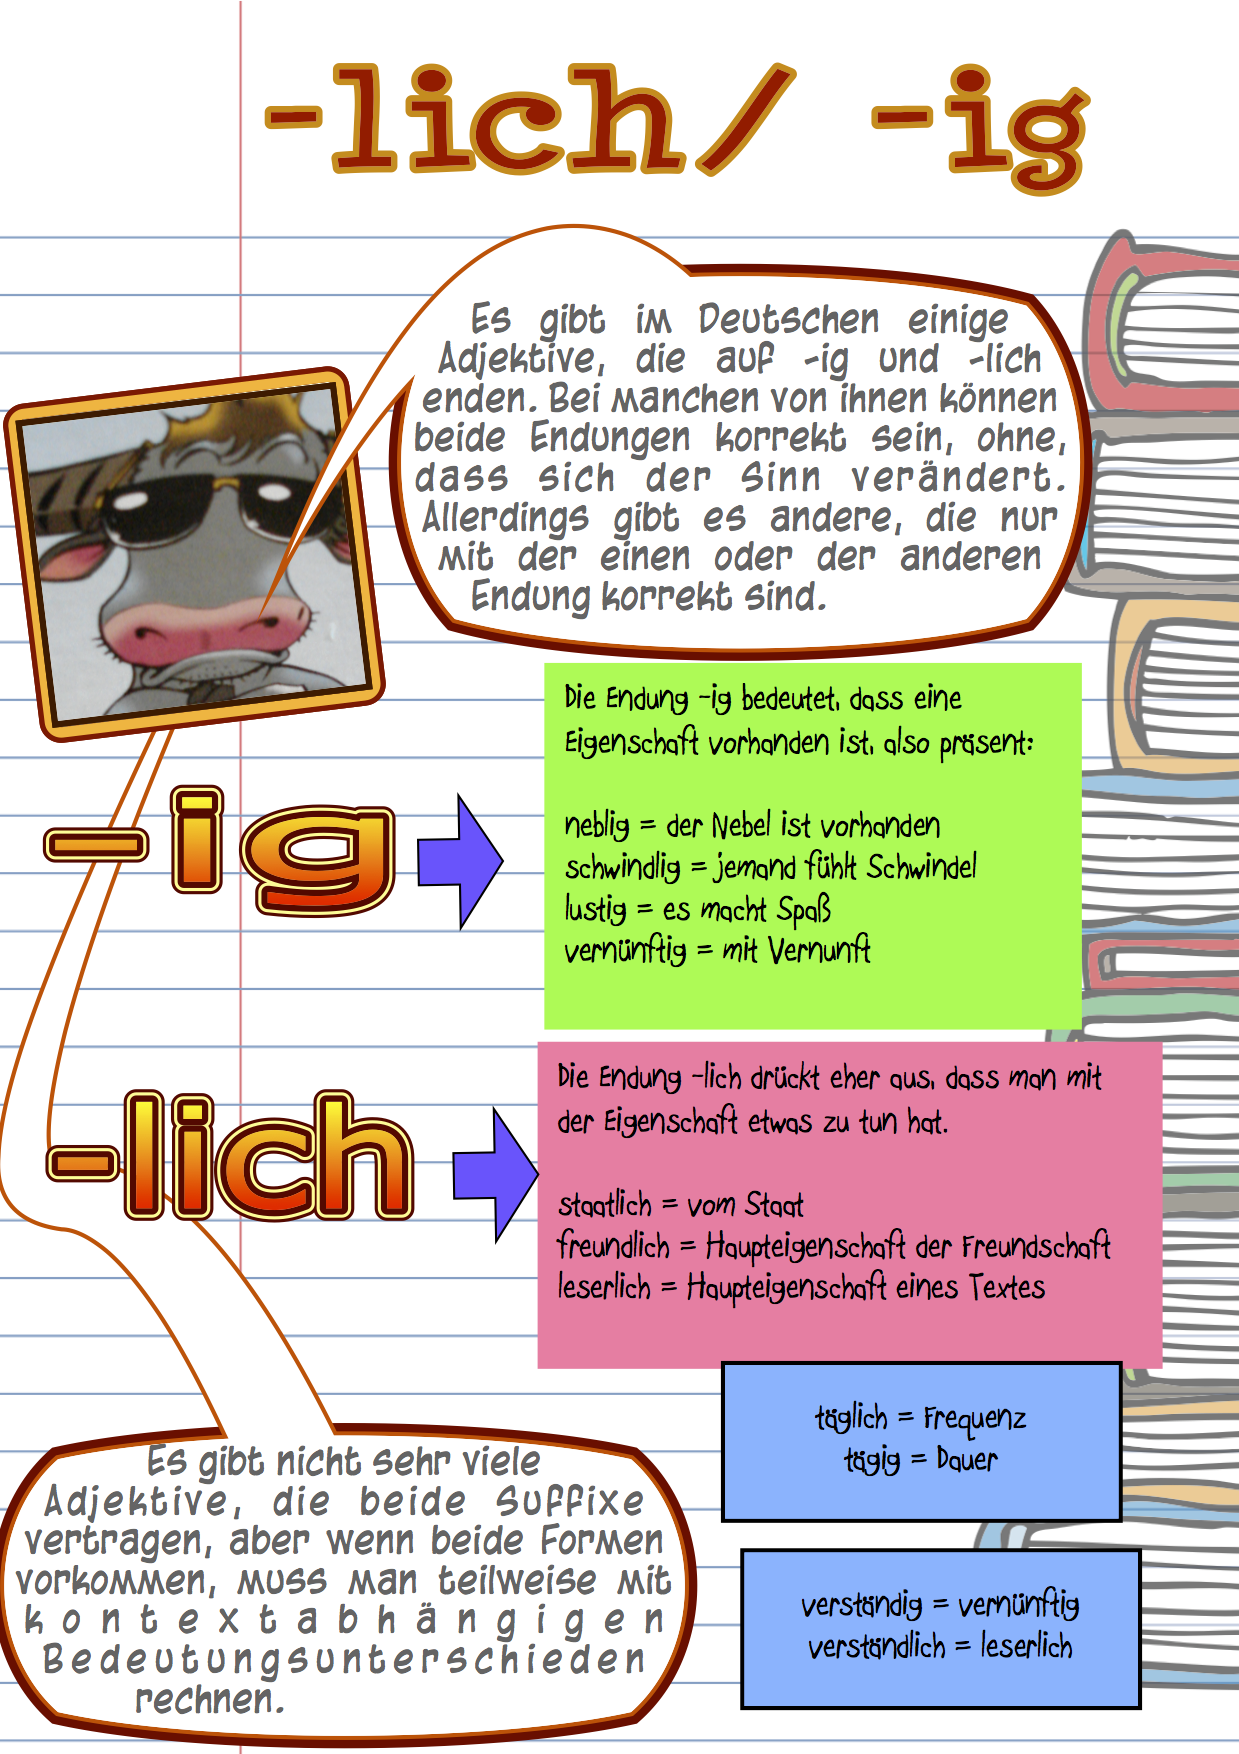 -lich/ -ig
Es gibt im Deutschen einige
Adjektive, die auf -ig und -lich
enden. Bei manchen von ihnen können
beide Endungen korrekt sein, ohne,
dass sich der Sinn verändert.
Allerdings gibt es andere, die nur
mit der einen oder der anderen
Endung korrekt sind.
-ig
Die Endung -ig bedeutet, dass eine
Eigenschaft vorhanden ist, also präsent:
neblig = der Nebel ist vorhanden
schwindlig = jemand fühlt Schwindel
lustig = es macht Spaß
vernünftig = mit Vernunft
-lich
Die Endung -lich drückt eher aus, dass man mit
der Eigenschaft etwas zu tun hat.
staatlich = vom Staat
freundlich = Haupteigenschaft der Freundschaft
leserlich = Haupteigenschaft eines Textes
täglich = Frequenz
tägig = Dauer
Es gibt nicht sehr viele
Adjektive, die beide Suffixe
vertragen, aber wenn beide Formen
vorkommen, muss man teilweise mit
kontextabhängigen
Bedeutungsunterschieden
rechnen.
verständig = vernünftig
verständlich = leserlich